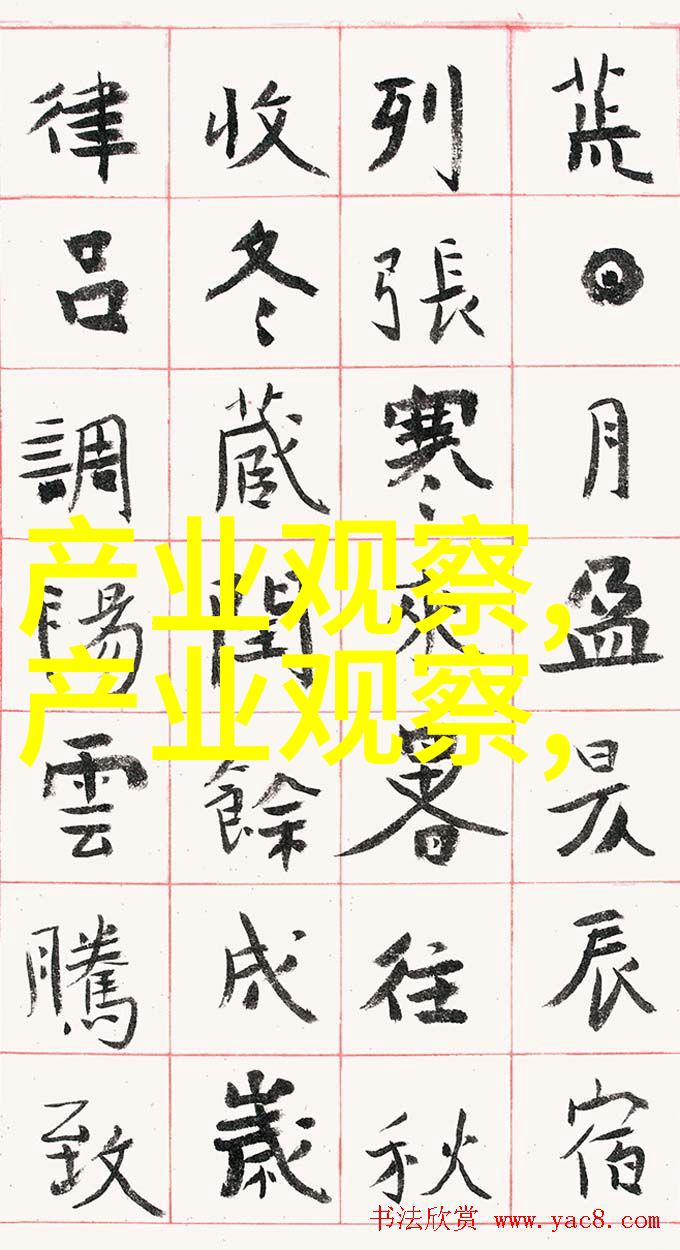 荒日月盈昃辰宿
列張寒來暑往秋
收冬藏閏餘成歲
律呂調陽雲騰致
产业观察,
产业观察,
书法欣赏 www.yac8.com